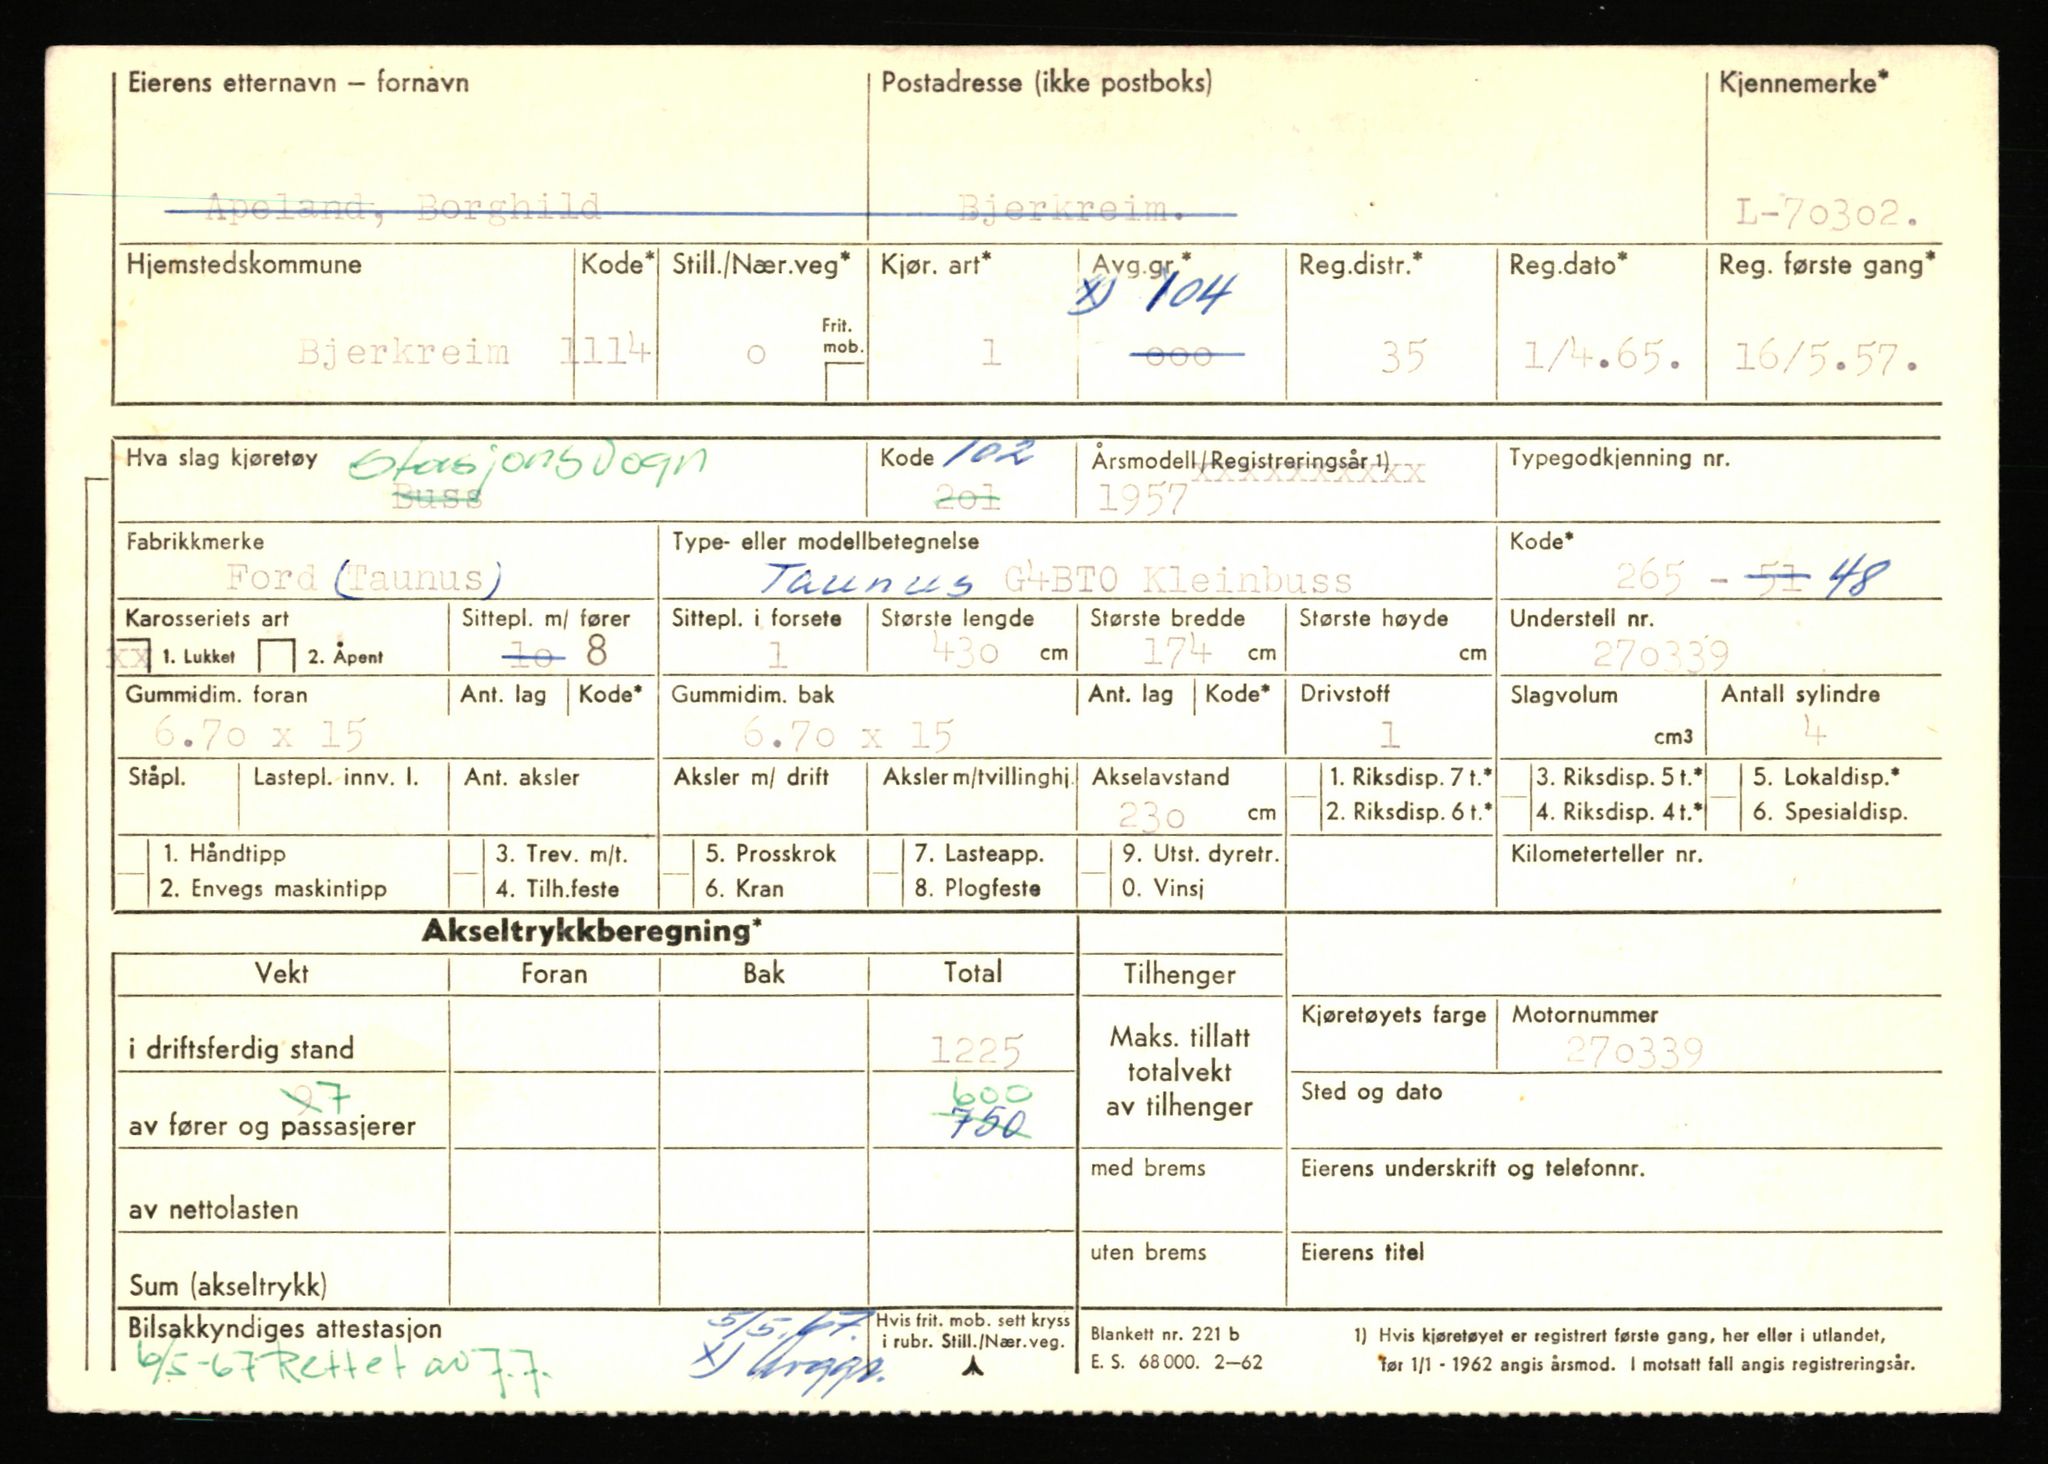 Eierens etternavn – fornavn Postadresse (ikke postboks) Kjennemerke*
Apeland, Borghild Bjerkreim. L-70302.
Hjemstedskommune Kode* Still./Nær.veg* Kjør. art* Avg.gr.* Reg.distr.* Reg.dato* Reg. første gang*
x) 104
Frit. mob.
Bjerkreim 1114 o 1 ooo 35 1/4.65. 16/5.57.
Hva slag kjøretøy Stasjonsvogn Kode 102 Årsmodell/Registreringsår 1) Typegodkjenning nr.
xxxxxxxxxx
Buss 2o1 1957
Fabrikkmerke Type- eller modellbetegnelse Kode*
Ford (Taunus) Taunus G4BTO Kleinbuss 265 - 51 48
Karosseriets art Sittepl. m/ fører Sittepl. i forsete Største lengde Største bredde Største høyde Understell nr.
xx 1. Lukket 2. Åpent 1o 8 1 430 cm 174 cm cm 270339
Gummidim. foran Ant. lag Kode* Gummidim. bak Ant. lag Kode* Drivstoff Slagvolum Antall sylindre
6.70 x 15 6.70 x 15 1 cm3 4
Ståpl. Lastepl. innv. l. Ant. aksler Aksler m/ drift Aksler m/tvillinghj. Akselavstand 1. Riksdisp. 7 t.* 3. Riksdisp. 5 t.* 5. Lokaldisp.*
230 cm 2. Riksdisp. 6 t.* 4. Riksdisp. 4 t.* 6. Spesialdisp.
1. Håndtipp 3. Trev. m/t. 5. Prosskrok 7. Lasteapp. 9. Utst. dyretr. Kilometerteller nr.
2. Envegs maskintipp 4. Tilh.feste 6. Kran 8. Plogfeste 0. Vinsj
Akseltrykkberegning*
Vekt Foran Bak Total Tilhenger
Kjøretøyets farge Motornummer
i driftsferdig stand 1225 Maks. tillatt totalvekt av tilhenger 270339
9 7 600
Sted og dato
av fører og passasjerer 750
med brems Eierens underskrift og telefonnr.
av nettolasten
uten brems Eierens titel
Sum (akseltrykk)
Bilsakkyndiges attestasjon 5/5.67. Hvis frit. mob. sett kryss i rubr. Still./Nær.veg.
6/5-67 Rettet av J.J. x)
Blankett nr. 221 b
E. S. 68 000. 2–62
1) Hvis kjøretøyet er registrert første gang, her eller i utlandet,
før 1/1 - 1962 angis årsmod. I motsatt fall angis registreringsår.